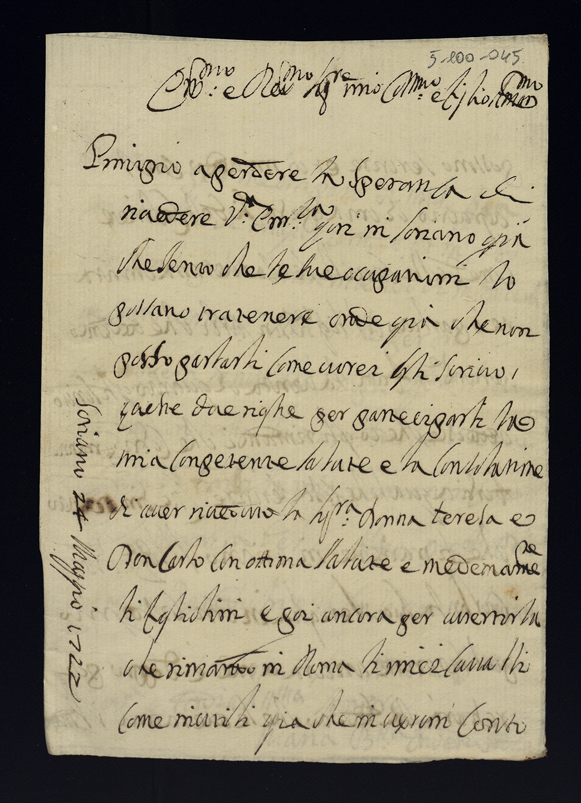 5-100-045
Em.mo e Rev.mo Sig.re mio Oss.mo e Figlio Amat.mo
Principio a perdere la speranza di
rivedere V.a Em.za poi in Soriano già
che sento che le sue occupationi lo
possano tratenere onde già che non
posso parlarli come vorei gli scrivo
queste due righe per parteciparli la
mia competente salute e la consolatione
di aver riceuto la Sig.ra Donna teresa e
Don Carlo con ottima salute e medemam.te
li figliolini e poi ancora per avertirla
che rimando in Roma li miei Cavalli
come inutili gia che in ogni conto
Soriano 24 Maggio 1722